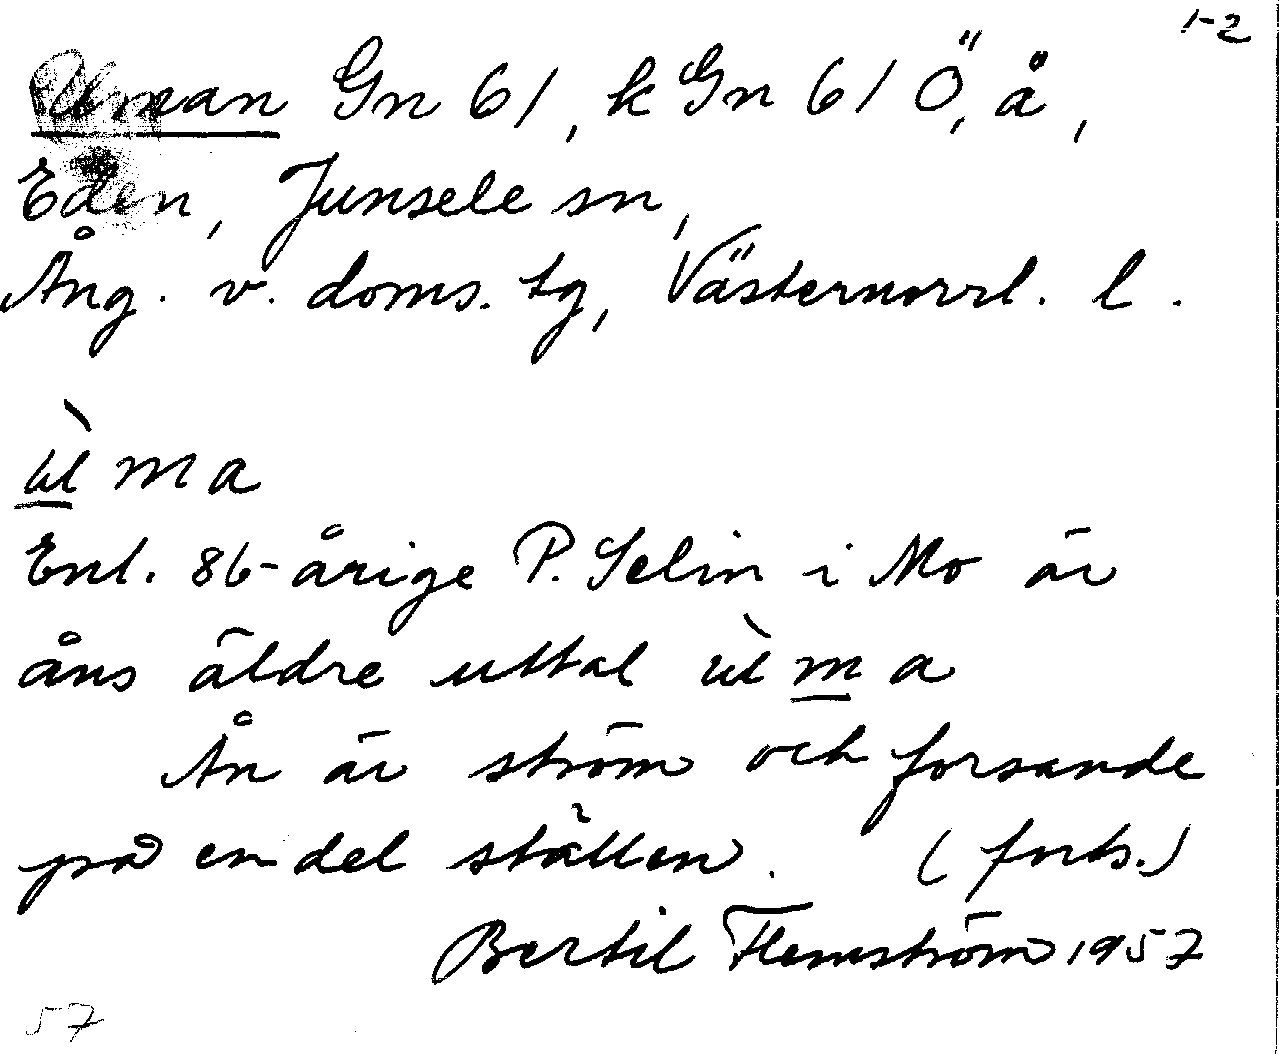 1-2
Uman Gn 61, k Gn 61 Ö, å,
Eden, Junsele sn,
Ång. v. doms. tg, Västernorrl. l.
ùma
Enl. 86-årige P. Selin i Mo är
åns äldre uttal ùma
Ån är ström och forsande
på en del ställen. (forts.)
Bertil Flemström 1957
57